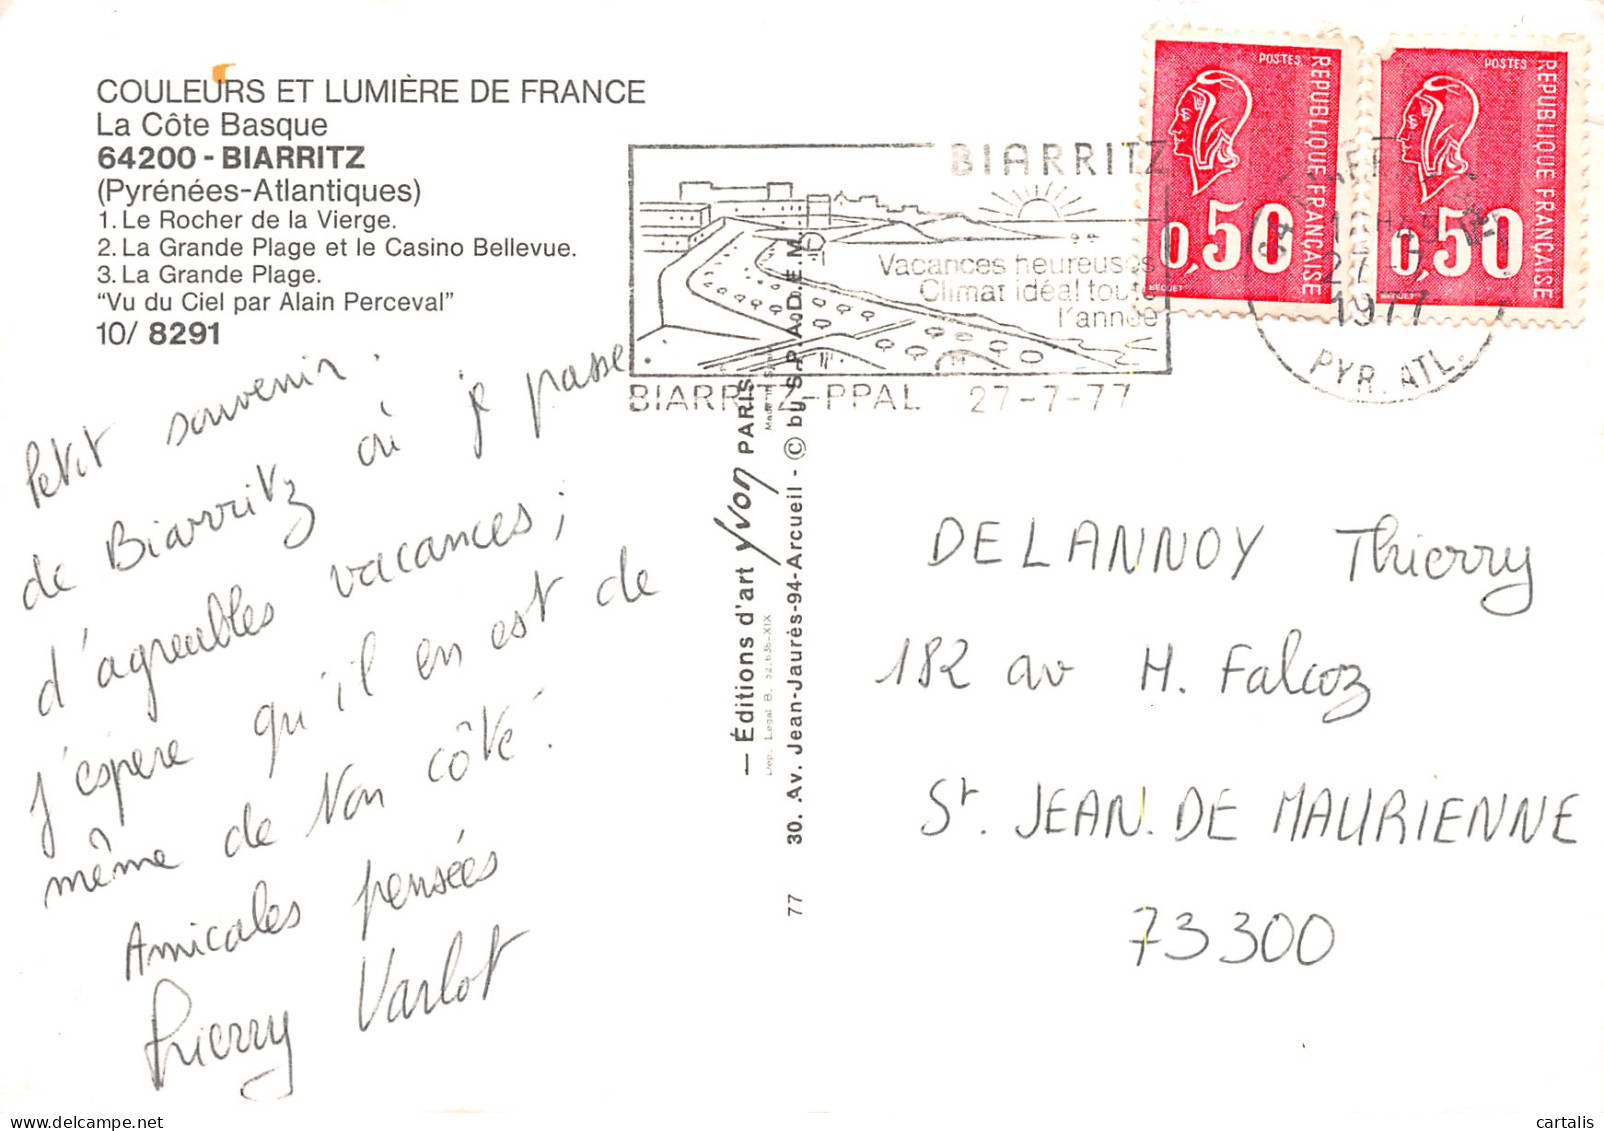 COULEURS ET LUMIÈRE DE FRANCE
La Côte Basque
64200 - BIARRITZ
(Pyrénées-Atlantiques)
1. Le Rocher de la Vierge.
2. La Grande Plage et le Casino Bellevue.
3. La Grande Plage.
"Vu du Ciel par Alain Perceval"
10/ 8291
Petit souvenir
de Biarritz où je passe
d'agreables vacances;
j'espere qu'il en est de
même de ton côté.
Amicales pensées
Thierry Varlot
BIARRITZ
Vacances heureuses
Climat idéal toute
l'année
BIARRITZ-PPAL 27-7-77
POSTES
REPUBLIQUE FRANÇAISE
0,50
BEQUET
POSTES
REPUBLIQUE FRANÇAISE
0,50
BEQUET
27-7
1977
PYR. ATL.
— Éditions d'art Yvon PARIS
30. Av. Jean-Jaurès-94-Arcueil - © by S.P.A.D.E.M.
77
DELANNOY Thierry
182 av H. Falcoz
St. JEAN. DE MAURIENNE
73300
cartalis